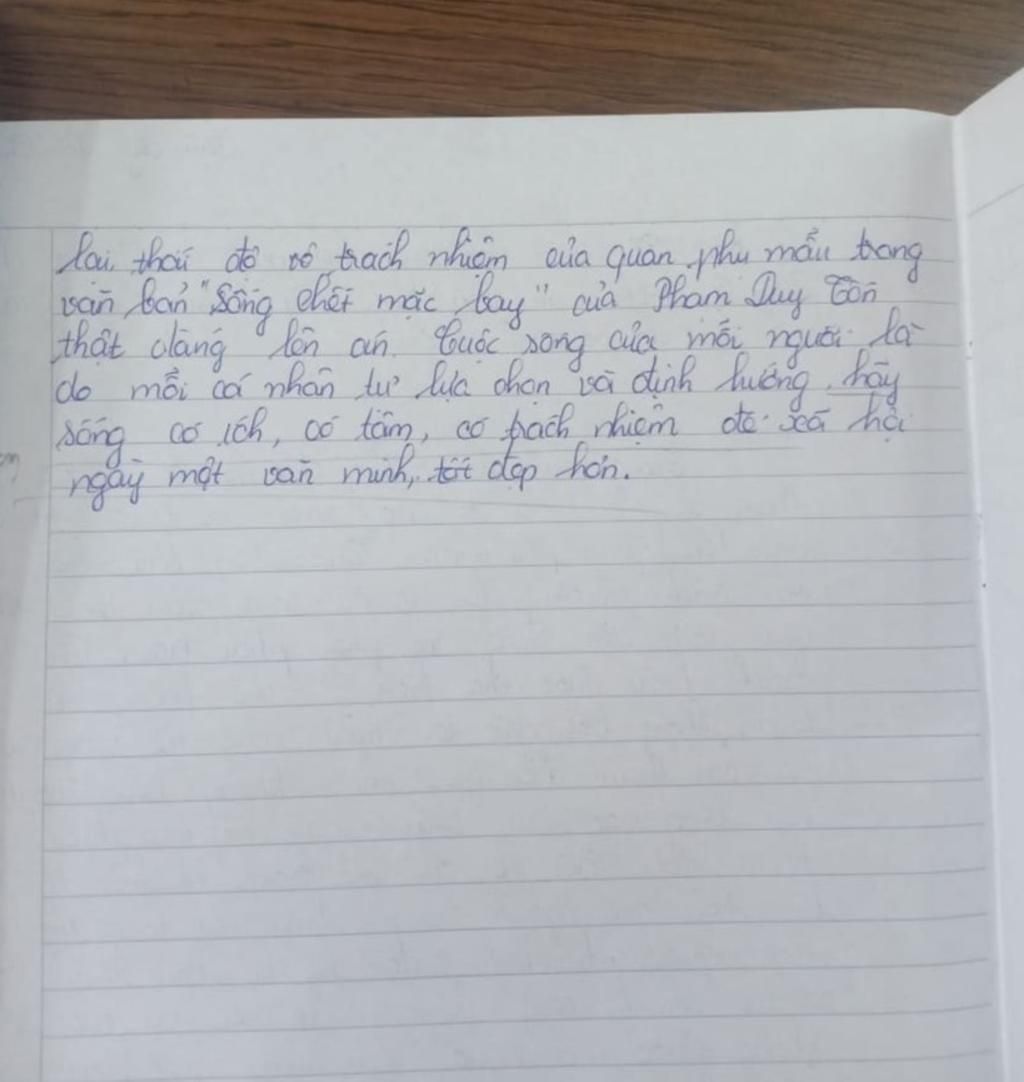 lại, thái độ vô trách nhiệm của quan phụ mẫu trong
văn bản "Sống chết mặc bay" của Phạm Duy Tốn
thật đáng lên án. Cuộc sống của mỗi người là
do mỗi cá nhân tự lựa chọn và định hướng, hãy
sống có ích, có tâm, có trách nhiệm để xã hội
ngày một văn minh, tốt đẹp hơn.